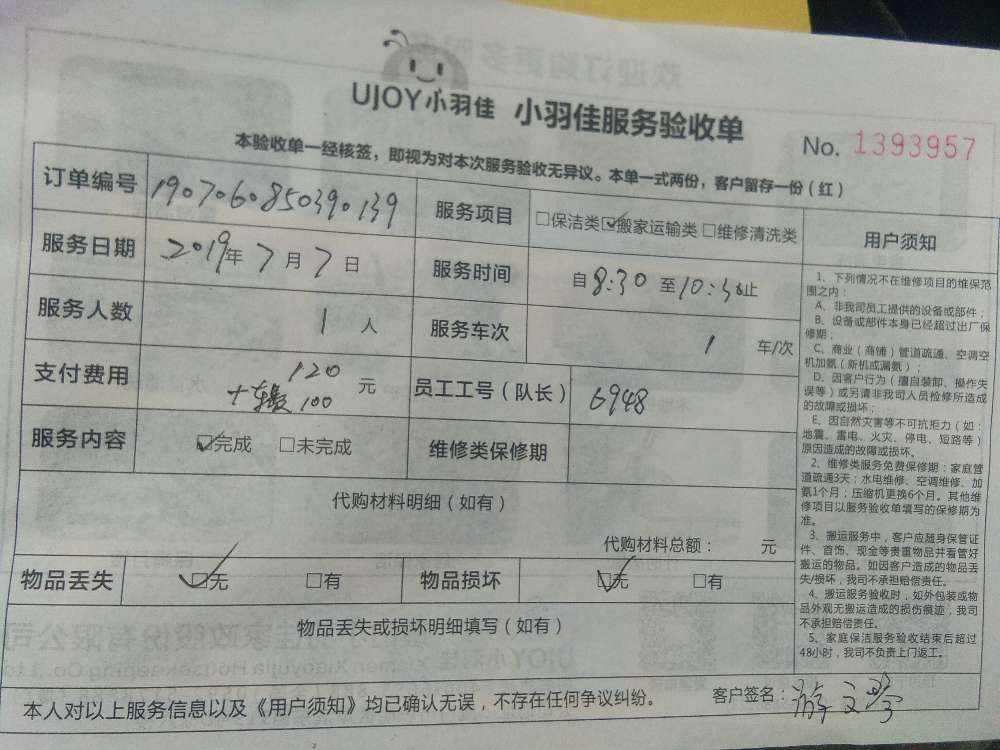 UJOY小羽佳 小羽佳服务验收单
No. 1393957
本验收单一经核签，即视为对本次服务验收无异议。本单一式两份，客户留存一份（红）
订单编号 1907060850390139 服务项目 □保洁类 ☑搬家运输类 □维修清洗类
服务日期 2019年7月7日 服务时间 自8:30至10:30止
服务人数 1 人 服务车次 1 车/次
支付费用 120 元 员工工号（队长） 6948
+车费100
服务内容 ☑完成 □未完成 维修类保修期
代购材料明细（如有）
代购材料总额： 元
物品丢失 ☑无 □有 物品损坏 ☑无 □有
物品丢失或损坏明细填写（如有）
用户须知
1、下列情况不在维修项目的维保范
围之内：
A、非我司员工提供的设备或部件；
B、设备或部件本身已经超过出厂保
修期；
C、商业（商铺）管道疏通、空调空
机加氨（新机或漏氨）；
D、因客户行为（擅自装卸、操作失
误等）或另请非我司人员检修所造成
的故障或损坏；
E、因自然灾害等不可抗拒力（如：
地震、雷电、火灾、停电、短路等）
原因造成的故障或损坏。
2、维修类服务免费保修期：家庭管
道疏通3天；水电维修、空调维修、加
氨1个月；压缩机更换6个月。其他维
修项目以服务验收单填写的保修期为
准。
3、搬运服务中，客户应随身保管证
件、首饰、现金等贵重物品并看管好
搬运的物品。如因客户造成的物品丢
失/损坏，我司不承担赔偿责任。
4、搬运服务验收时，如外包装或物
品外观无搬运造成的损伤痕迹，我司
不承担赔偿责任。
5、家庭保洁服务验收结束后超过
48小时，我司不负责上门返工。
本人对以上服务信息以及《用户须知》均已确认无误，不存在任何争议纠纷。 客户签名：